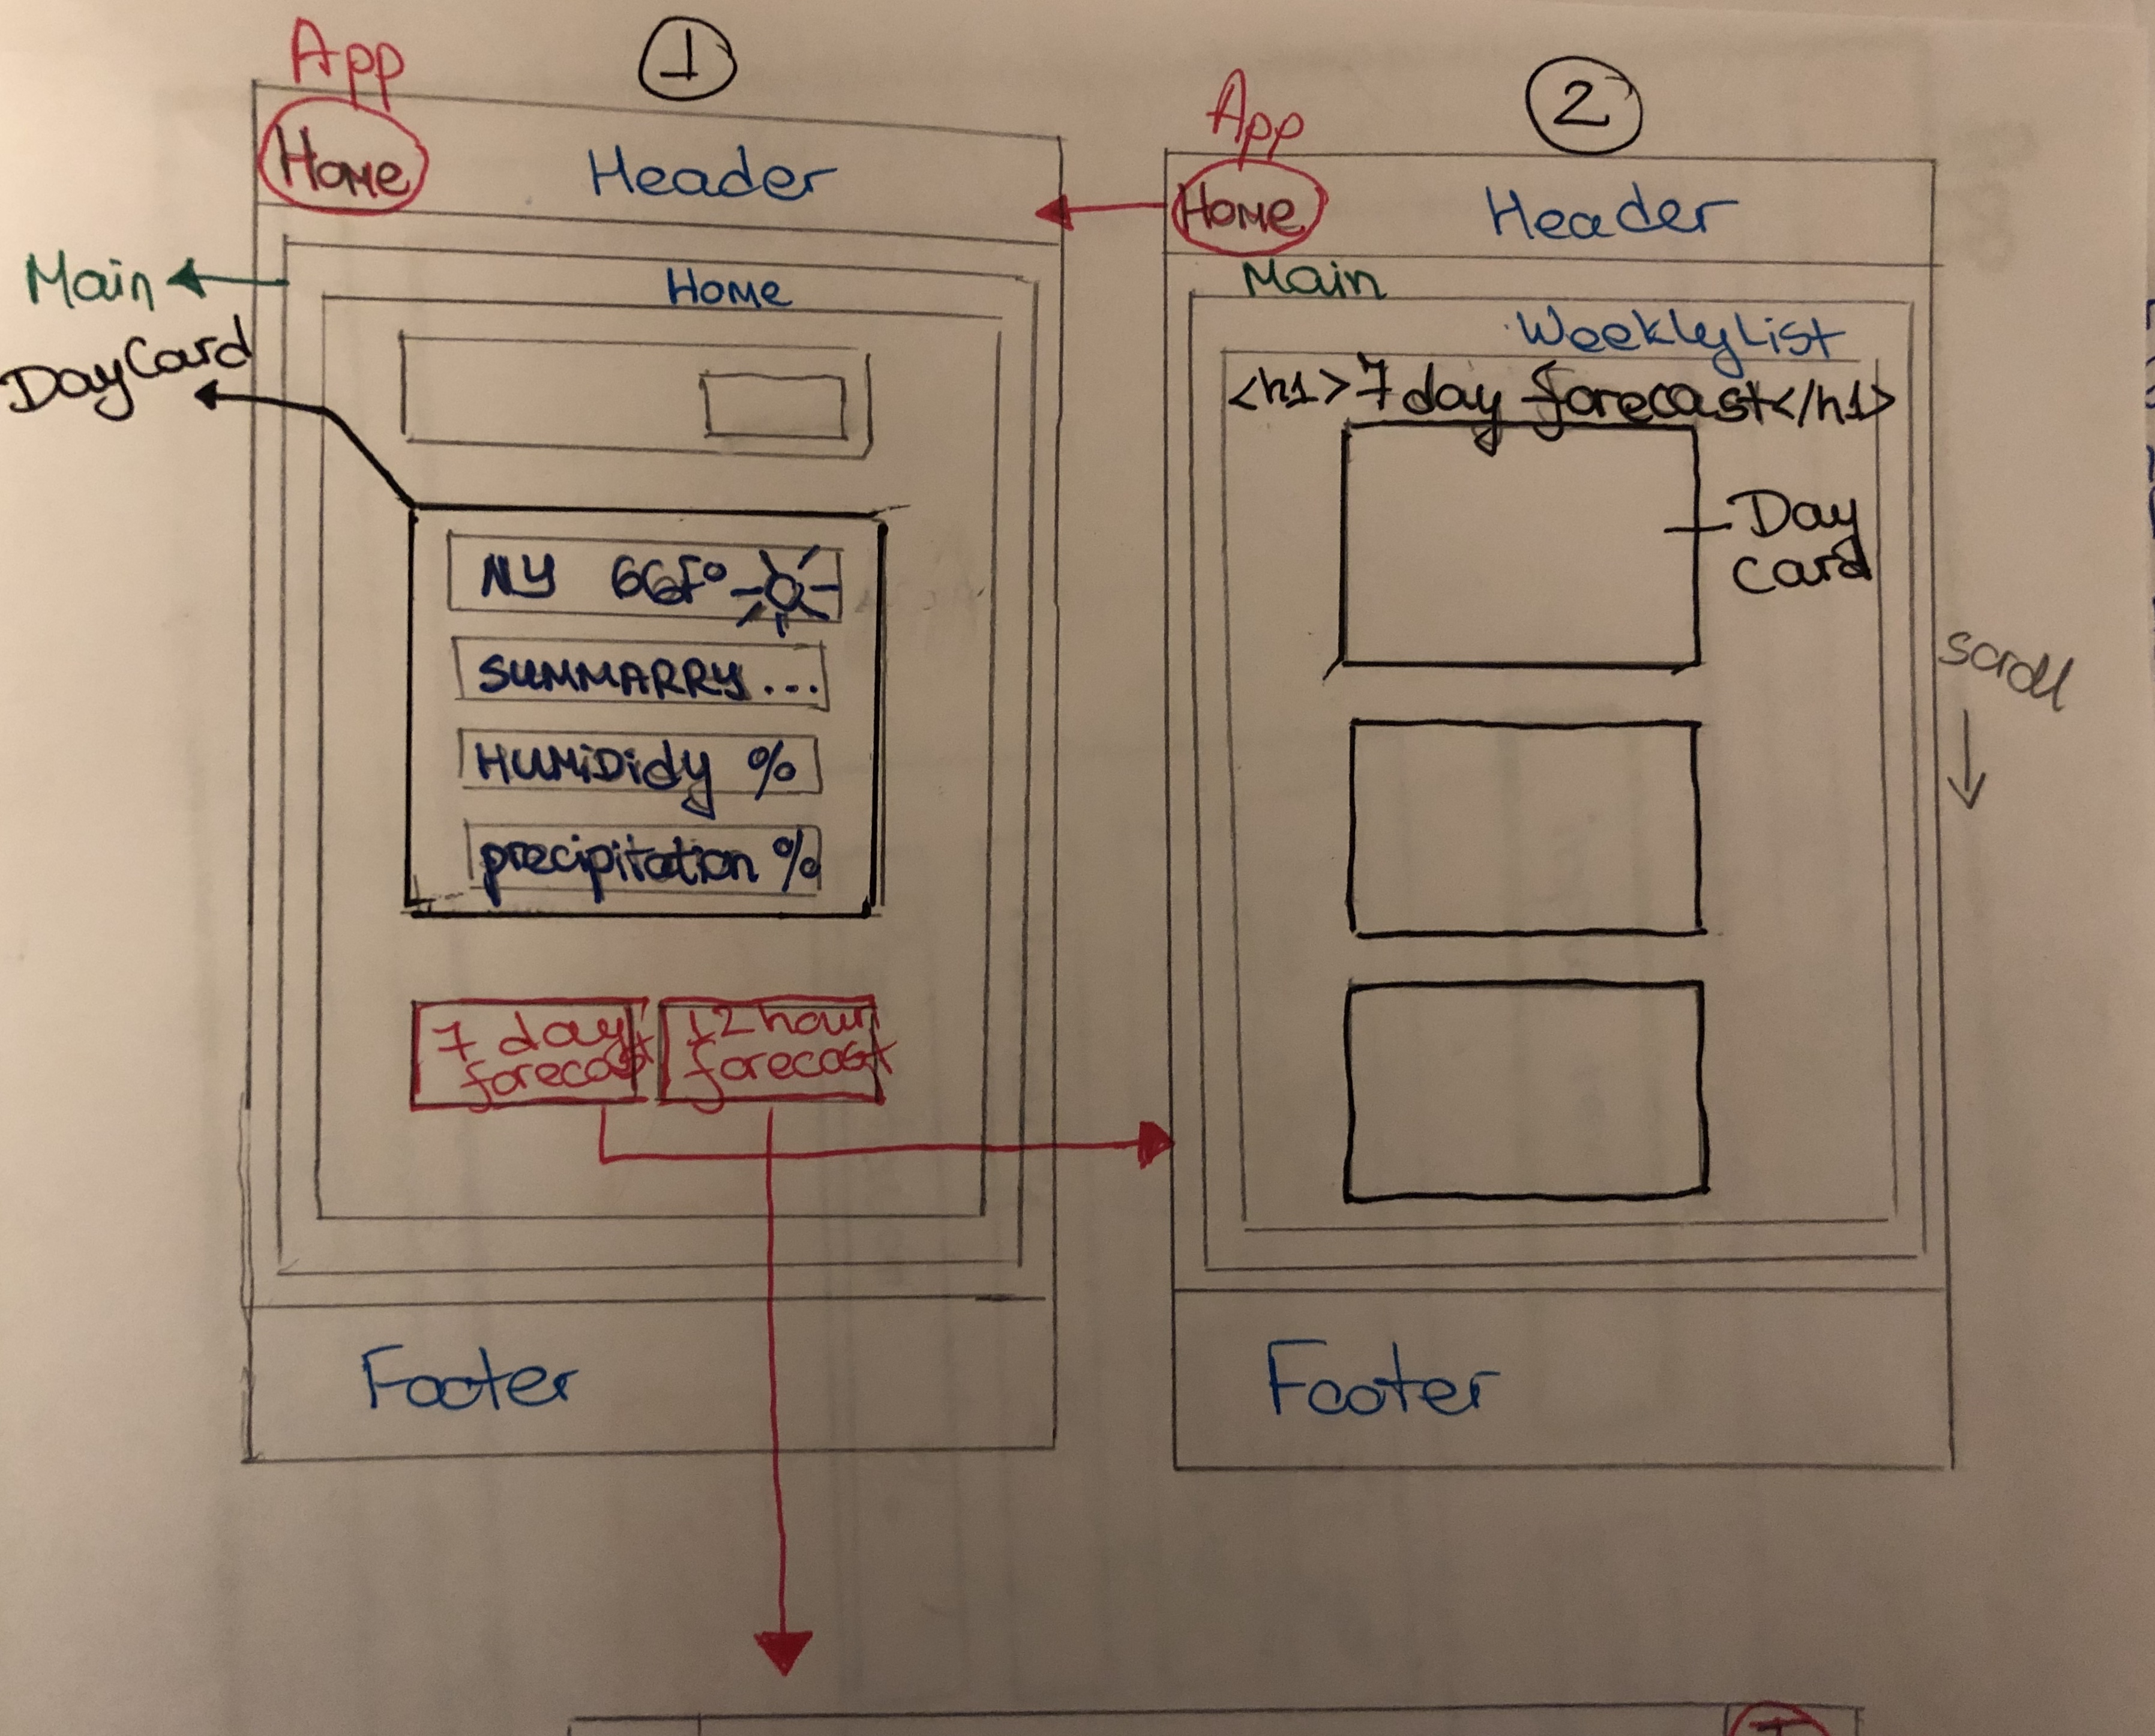 App
1
Home
Header
Main
Home
DayCard
NY 66F°
SUMMARRY...
HUMiDidy %
precipitation %
7 day
forecast
12 hour
forecast
Footer
App
2
Home
Header
Main
WeeklyList
<h1>7 day forecast</h1>
Day
Card
scroll
Footer